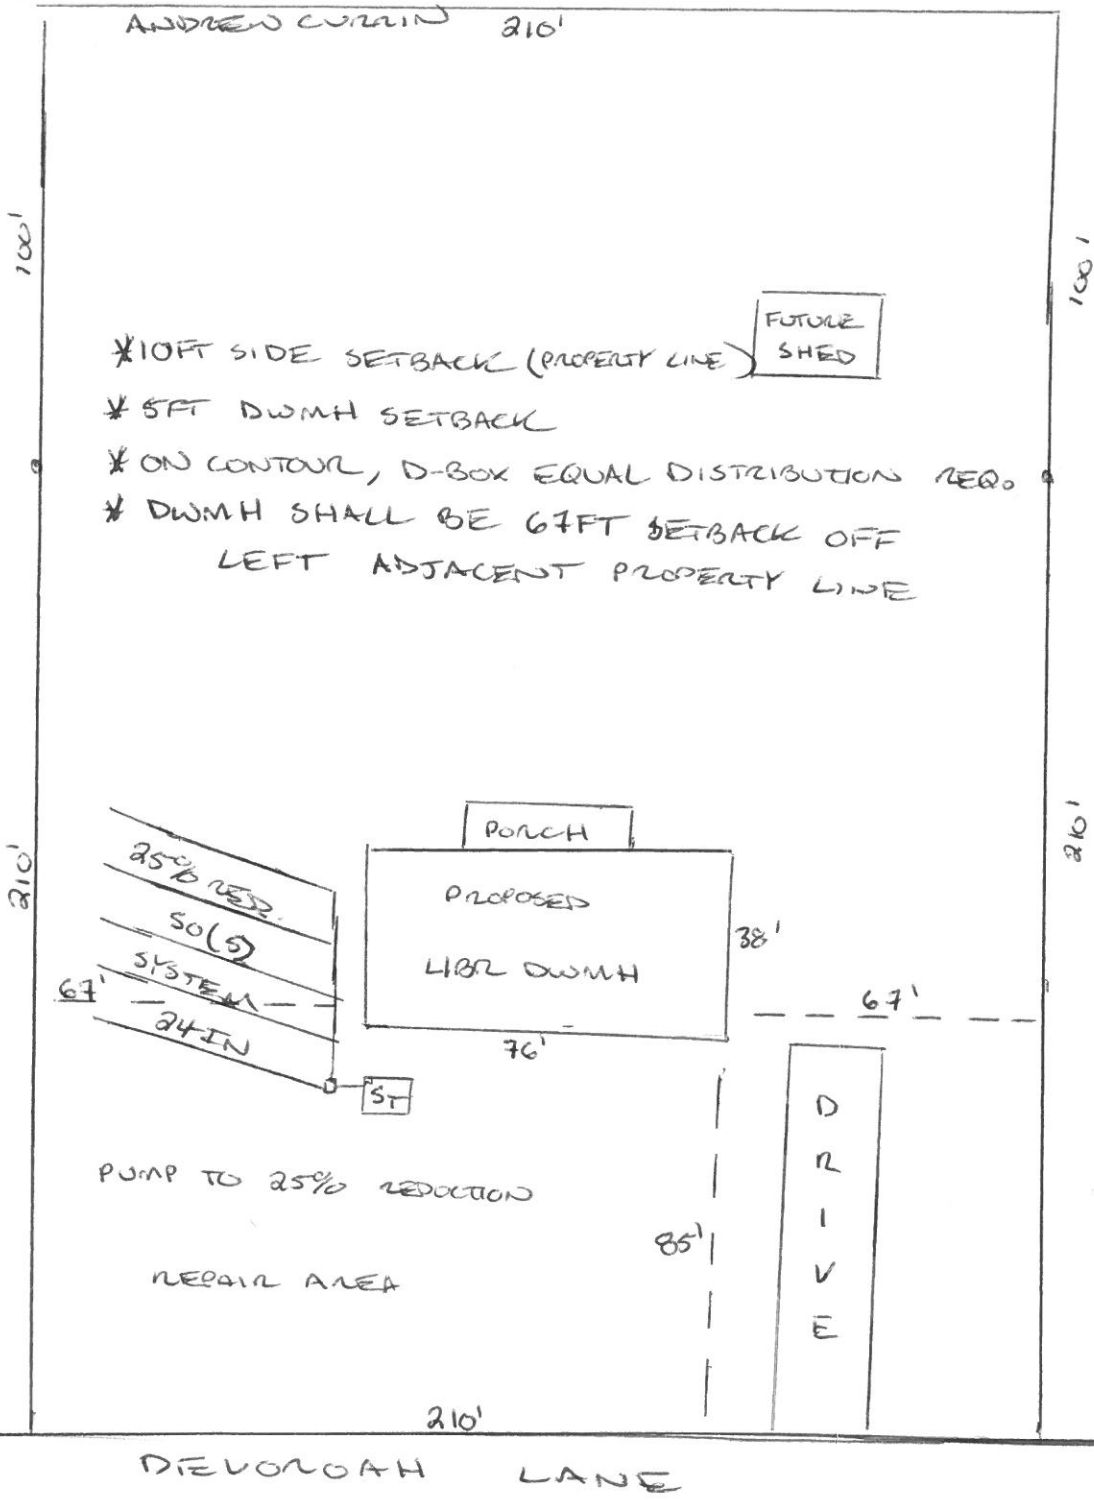 ANDREW CURRIN 210'
100'
100'
FUTURE
SHED
*10FT SIDE SETBACK (PROPERTY LINE)
* 5FT DWMH SETBACK
* ON CONTOUR, D-BOX EQUAL DISTRIBUTION REQ.
* DWMH SHALL BE 67FT SETBACK OFF
LEFT ADJACENT PROPERTY LINE
210'
210'
PORCH
PROPOSED
4IBR DWMH
38'
76'
25% RED.
50(5)
SYSTEM
24IN
67'
67'
ST
DRIVE
PUMP TO 25% REDUCTION
85'
REPAIR AREA
210'
DEVOROAH LANE